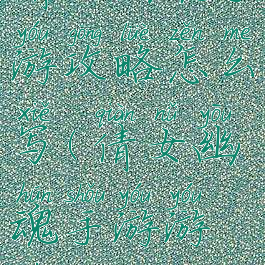 yóu gōng lüè zěn me
游攻略怎么
xiě qiàn nǚ yōu
写(倩女幽
hún shǒu yóu yóu
魂手游游